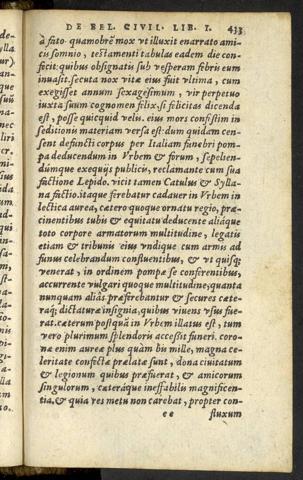 DE BEL. CIVIL. LIB. I. 433
à fato. quamobrẽ mox ut illuxit enarrato ami-
cis somnio, testamenti tabulas eadem die con-
fecit: quibus obsignatis sub vesperam febris eum
inuasit. secuta nox vitæ eius fuit vltima, cum
exegisset annum sexagesimum, vir perpetuo
iuxta suum cognomen felix. si felicitas dicenda
est, posse quicquid velis. eius mors confestim in
seditionis materiam versa est: dum quidam cen-
sent defuncti corpus per Italiam funebri pom-
pa deducendum in Vrbem & forum, sepelien-
dúmque exequijs publicis, reclamante cum sua
factione Lepido. vicit tamen Catulus & Sylla-
na factio. itaque ferebatur cadauer in Vrbem in
lectica aurea, cætero quoque ornatu regio, præ-
cinentibus tubis & equitatu deducente aliáque
toto corpore armatorum multitudine, legatis
etiam & tribunis eius vndique cum armis ad
funus celebrandum confluentibus, & vt quisq;
venerat, in ordinem pompæ se conferentibus,
accurrente vulgari quoque multitudine, quanta
nunquam aliâs. præferebantur & secures cæte-
raq; dictaturæ insignia, quibus viuens vsus fue-
rat. cæterum postquã in Vrbem illatus est, tum
vero plurimum splendoris accessit funeri. coro-
næ enim aureæ plus quàm bis mille, magna ce-
leritate confectæ prælatæ sunt, dona ciuitatum
& legionum quibus præfuerat, & amicorum
singulorum, cæteráque ineffabilis magnificen-
tia. & quia res metu non carebat, propter con-
ee fluxum